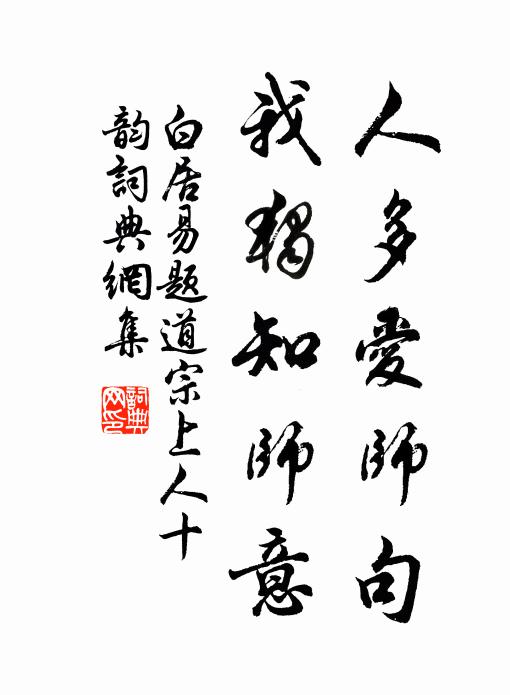 人多愛師句
我獨知師意
白居易題道宗上人十
韵詞典網集
詞典
网印